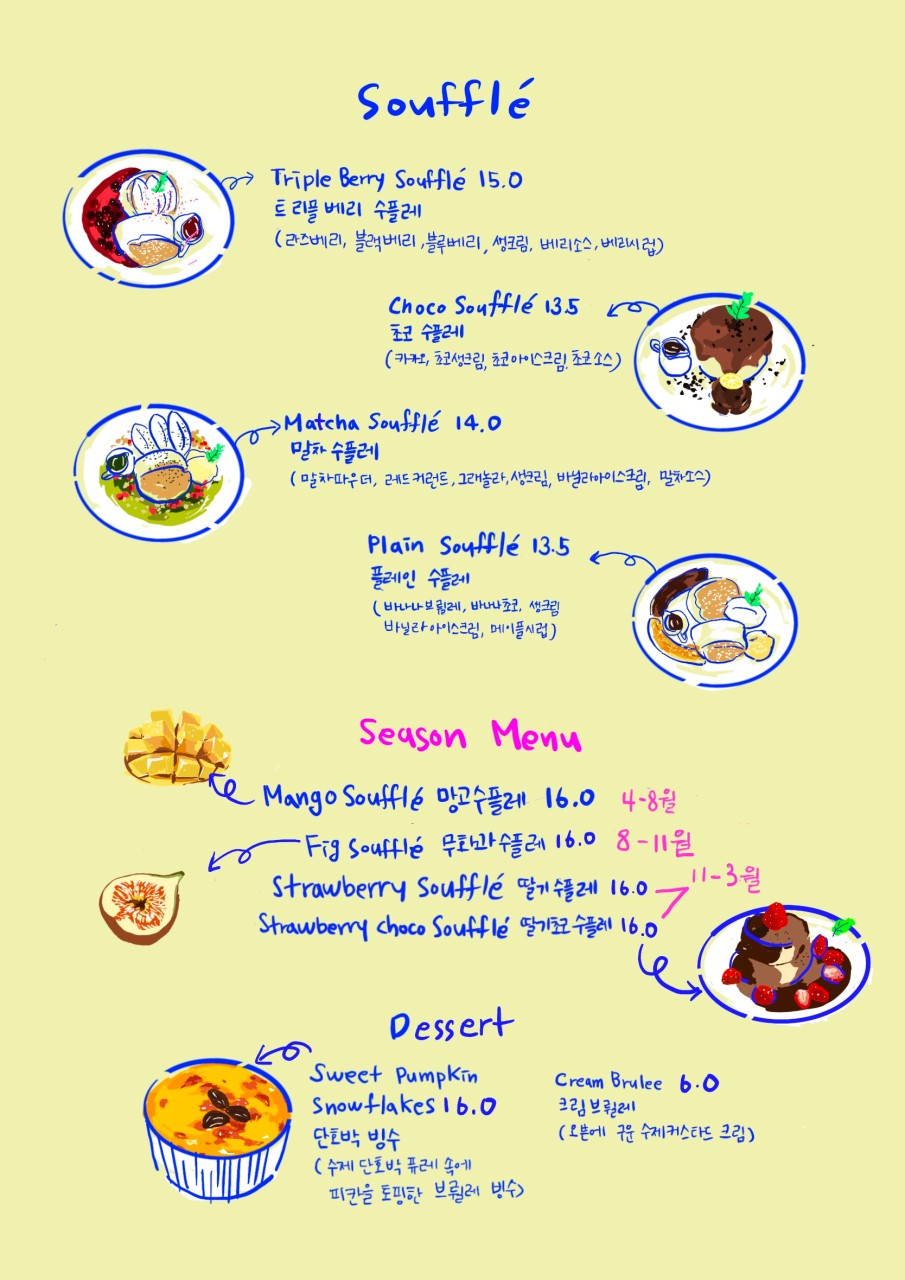 Soufflé
Triple Berry Soufflé 15.0
트리플베리 수플레
(라즈베리, 블랙베리, 블루베리, 생크림, 베리소스, 베리시럽)
Choco Soufflé 13.5
초코 수플레
(카카오, 초코생크림, 초코아이스크림, 초코소스)
Matcha Soufflé 14.0
말차 수플레
(말차파우더, 레드커런트, 그래놀라, 생크림, 바닐라아이스크림, 말차소스)
Plain Soufflé 13.5
플레인 수플레
(바나나브륄레, 바나나초코, 생크림
바닐라아이스크림, 메이플시럽)
Season Menu
Mango Soufflé 망고수플레 16.0 4-8월
Fig Soufflé 무화과수플레 16.0 8-11월
Strawberry Soufflé 딸기수플레 16.0 11-3월
Strawberry choco Soufflé 딸기초코수플레 16.0
Dessert
Sweet Pumpkin
Snowflakes 16.0
단호박 빙수
(수제 단호박 퓨레 속에
피칸을 토핑한 브륄레 빙수)
Cream Brulee 6.0
크림브륄레
(오븐에 구운 수제커스타드 크림)